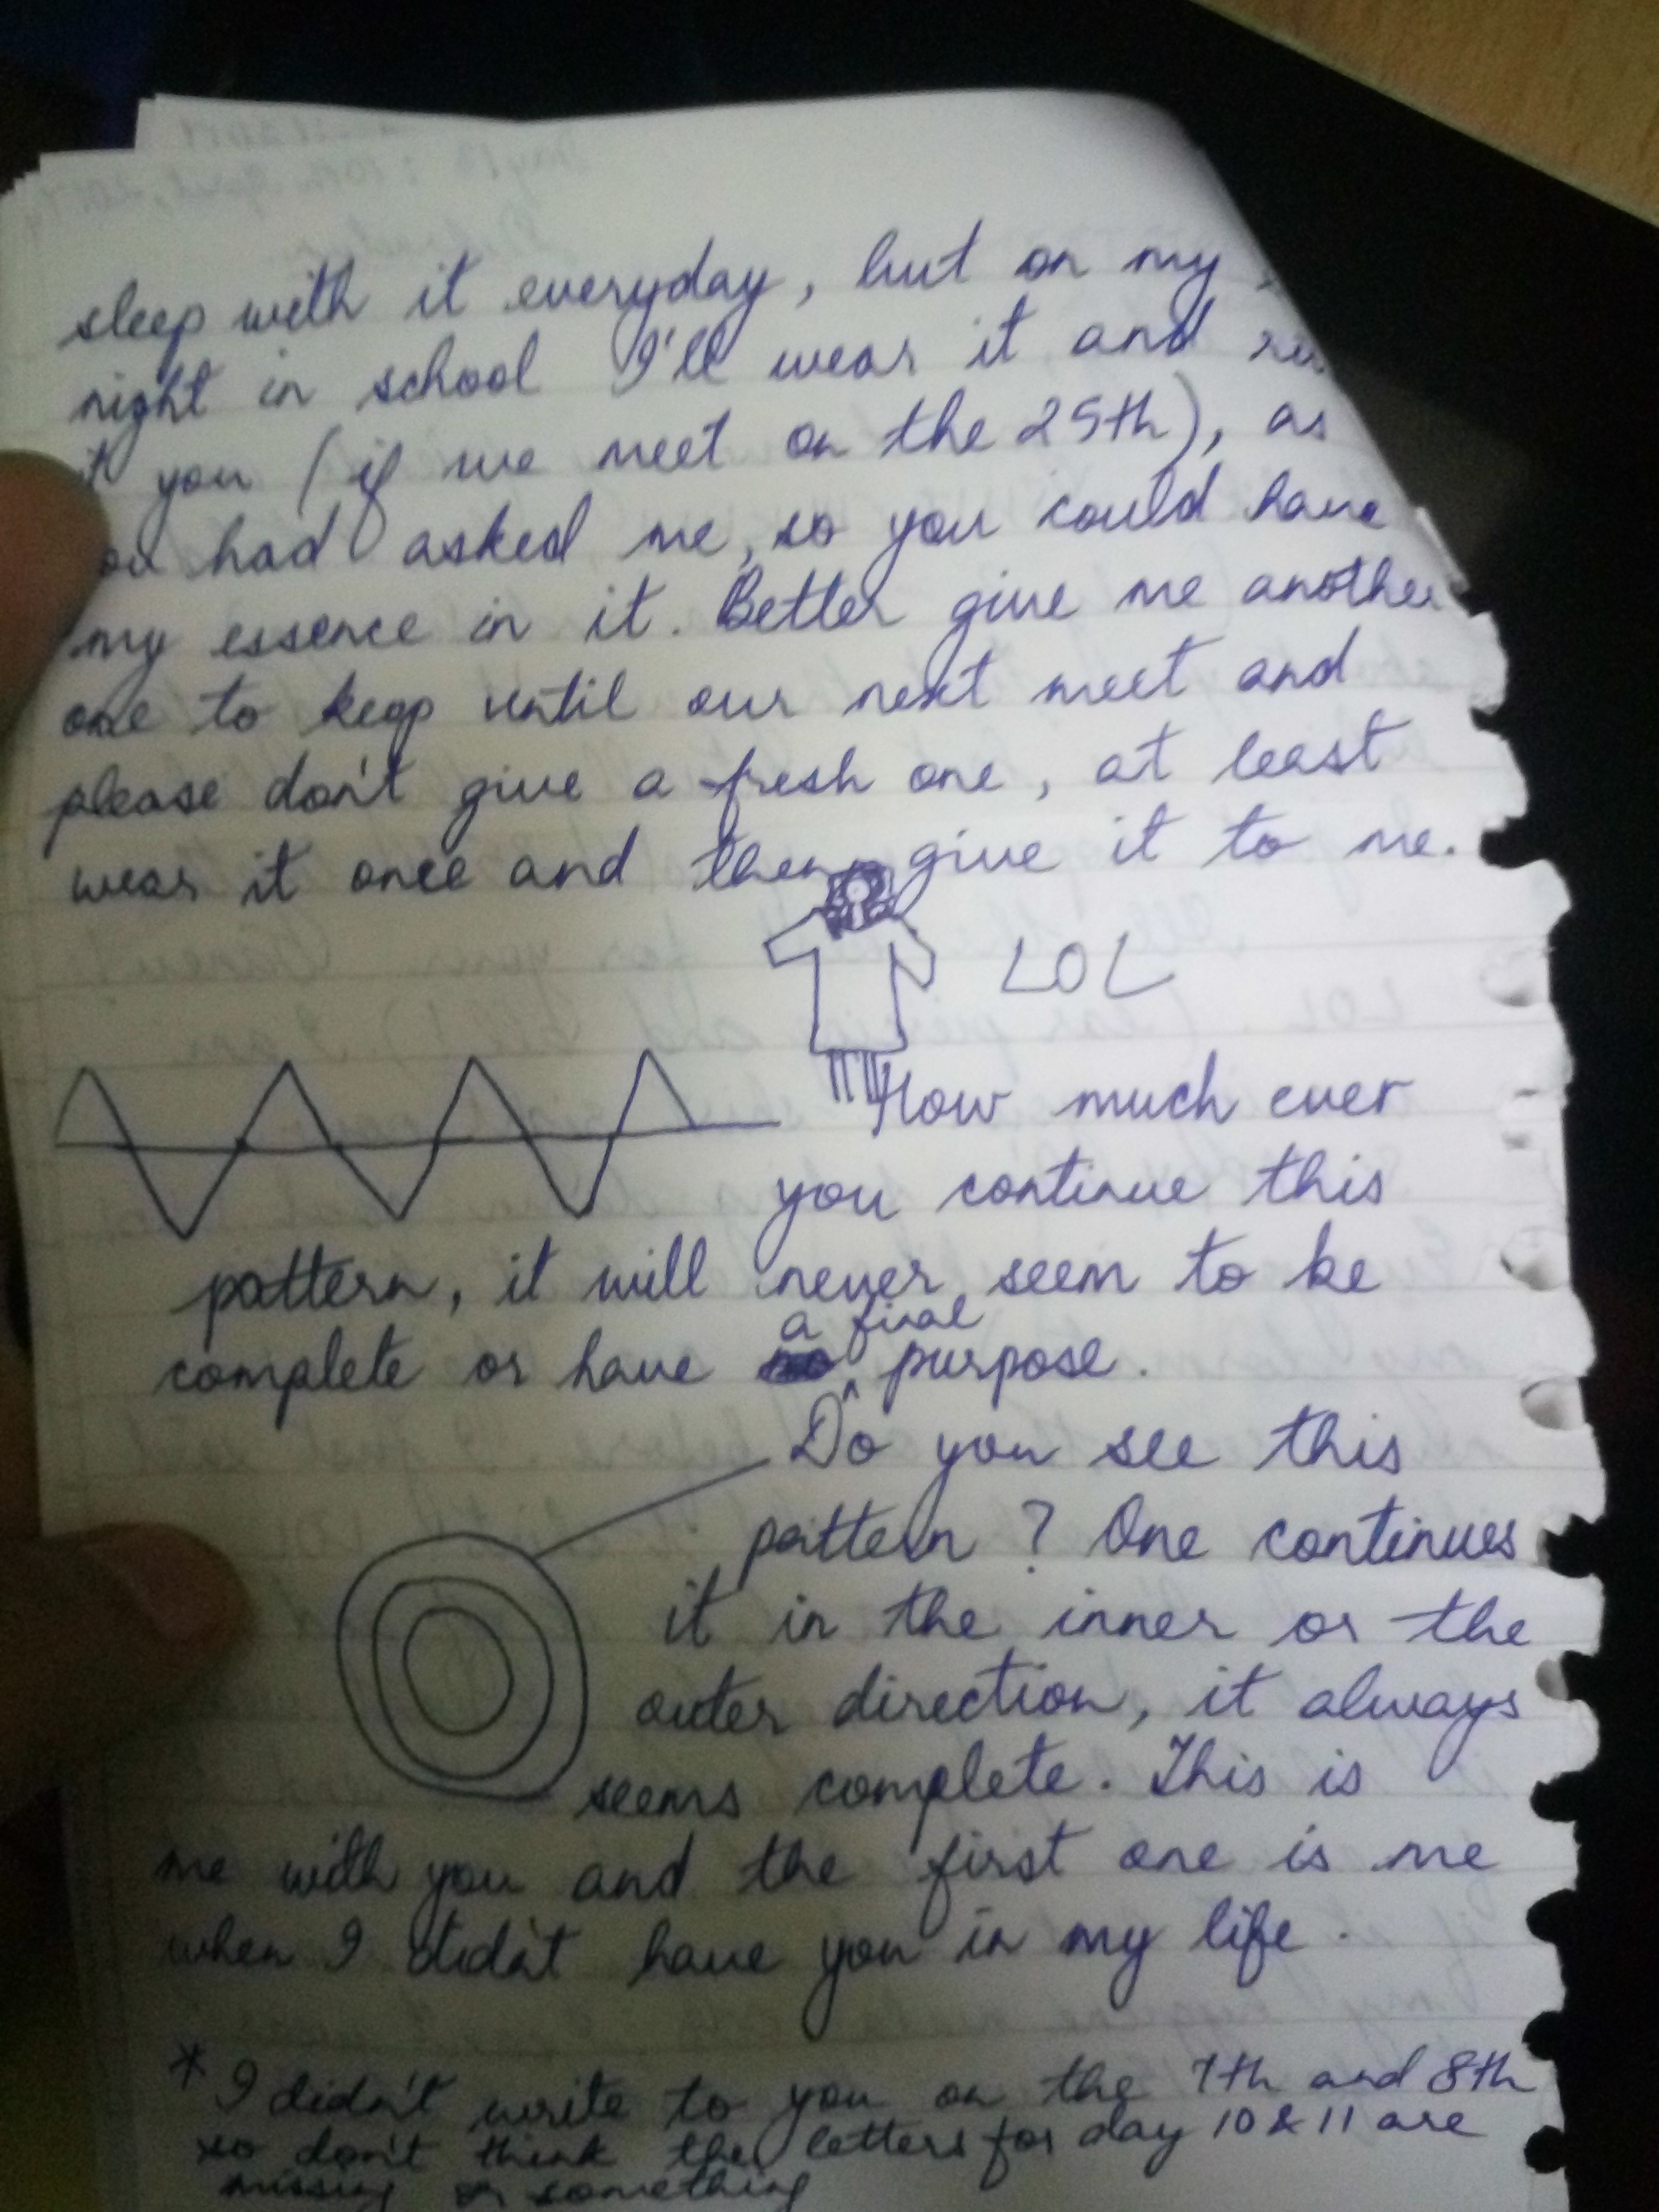 sleep with it everyday, but on my
night in school I'll wear it and
you (if we meet on the 25th), as
had asked me, so you could have
my essence in it. Better give me another
one to keep until our next meet and
please don't give a fresh one, at least
wear it once and then give it to me.
LOL
How much ever
you continue this
pattern, it will never seem to be
complete or have a final purpose.
Do you see this
pattern? One continues
it in the inner or the
outer direction, it always
seems complete. This is
me with you and the first one is me
when I didn't have you in my life.
* I didn't write to you on the 7th and 8th
so don't think the letters for day 10 & 11 are
missing or something